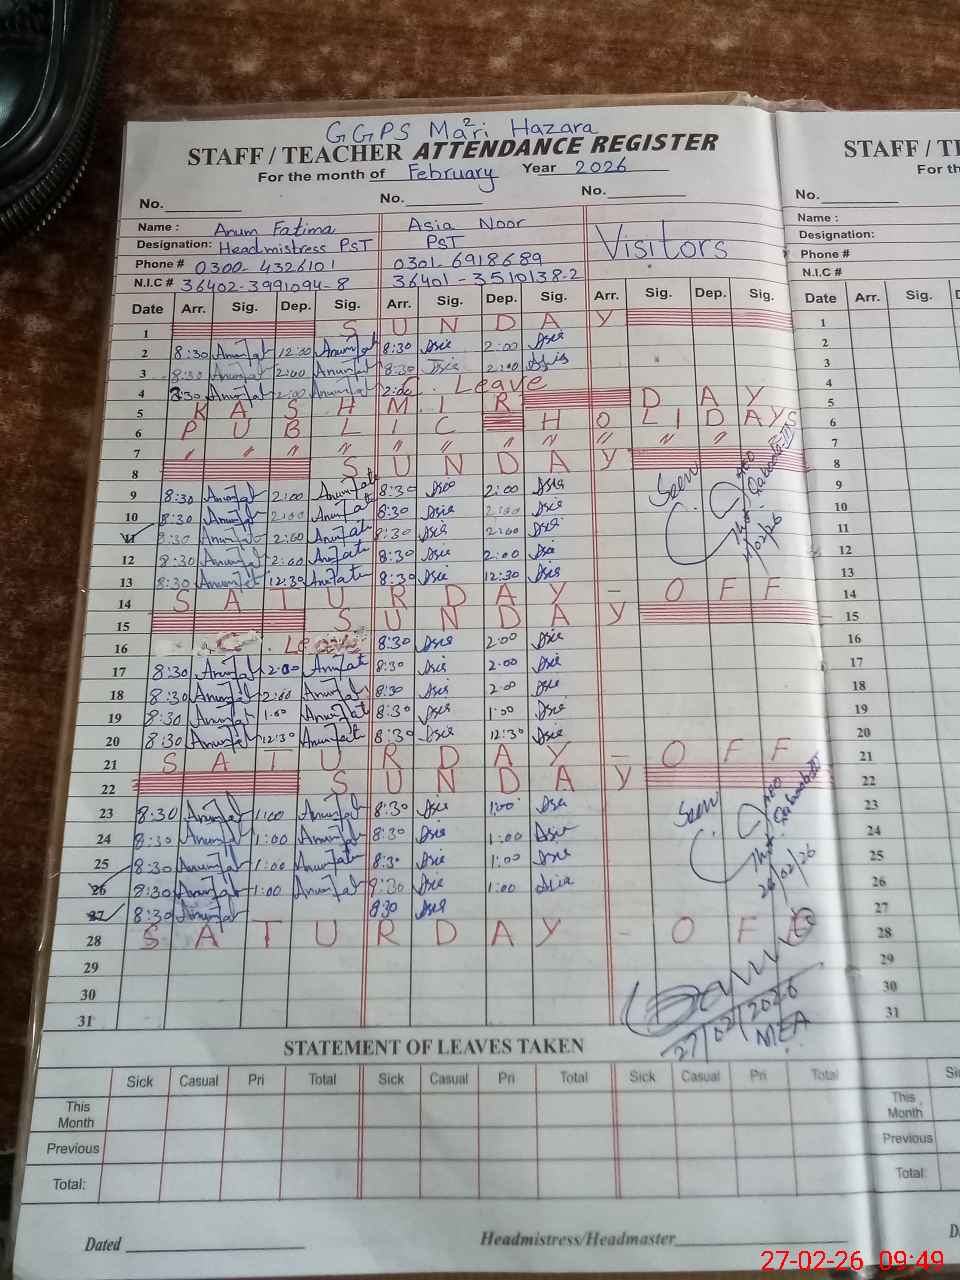 GGPS Mari Hazara
STAFF / TEACHER ATTENDANCE REGISTER
For the month of February Year 2026
No. No. No.
Name : Anum Fatima Asia Noor Visitors
Designation: Headmistress PST PST
Phone # 0300-4326101 0301-6918689
N.I.C # 36402-3991094-8 36401-3510138-2
Date Arr. Sig. Dep. Sig. Arr. Sig. Dep. Sig. Arr. Sig. Dep. Sig.
1 SUNDAY
2 8:30 Anumfat 12:00 Anumfat 8:30 Asia 2:00 Asia
3 8:30 Anumfat 2:00 Anumfat 8:30 Asia 2:00 Asia
4 8:30 Anumfat 2:00 Anumfat C. Leave
5 KASHMIR DAY
6 PUBLIC HOLIDAYS
7 " " " " " " " " " " " "
8 SUNDAY
9 8:30 Anumfat 2:00 Anumfat 8:30 Asia 2:00 Asia
10 8:30 Anumfat 2:00 Anumfat 8:30 Asia 2:00 Asia
11 8:30 Anumfat 2:00 Anumfat 8:30 Asia 2:00 Asia
12 8:30 Anumfat 2:00 Anumfat 8:30 Asia 2:00 Asia
13 8:30 Anumfat 12:30 Anumfat 8:30 Asia 12:30 Asia
Seen
11/02/26
14 SATURDAY - OFF
15 SUNDAY
16 C. Leave 8:30 Asia 2:00 Asia
17 8:30 Anumfat 2:00 Anumfat 8:30 Asia 2:00 Asia
18 8:30 Anumfat 2:00 Anumfat 8:30 Asia 2:00 Asia
19 8:30 Anumfat 1:00 Anumfat 8:30 Asia 1:00 Asia
20 8:30 Anumfat 12:30 Anumfat 8:30 Asia 12:30 Asia
21 SATURDAY - OFF
22 SUNDAY
23 8:30 Anumfat 1:00 Anumfat 8:30 Asia 1:00 Asia
24 8:30 Anumfat 1:00 Anumfat 8:30 Asia 1:00 Asia
25 8:30 Anumfat 1:00 Anumfat 8:30 Asia 1:00 Asia
26 8:30 Anumfat 1:00 Anumfat 8:30 Asia 1:00 Asia
27 8:30 Anumfat 8:30 Asia
Seen
28 SATURDAY - OFF
29
30
31
27/02/2026
MEA
STATEMENT OF LEAVES TAKEN
Sick Casual Pri Total Sick Casual Pri Total Sick Casual Pri Total
This Month
Previous
Total:
Dated Headmistress/Headmaster
STAFF / TE
For th
No.
Name :
Designation:
Phone #
N.I.C #
Date Arr. Sig. D
1
2
3
4
5
6
7
8
9
10
11
12
13
14
15
16
17
18
19
20
21
22
23
24
25
26
27
28
29
30
31
This Month
Previous
Total:
27-02-26 09:49